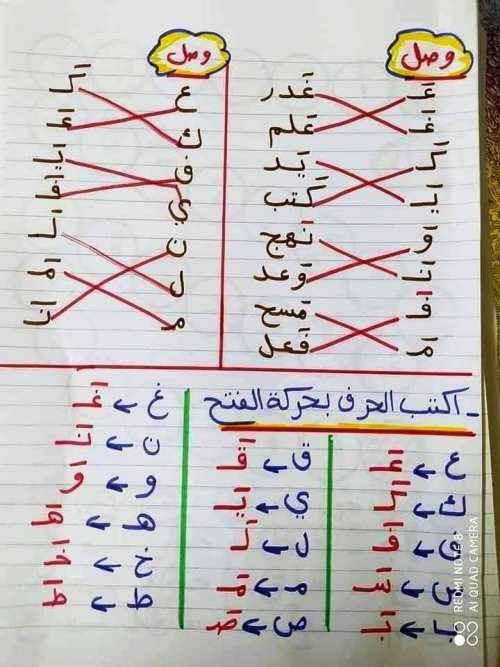 وصل
عَا غَدر
غَا عَلم
كَا يَد
يَا كَتب
وَ نَهج
نَا وَعد
فَا مَسح
مَ فَعل
وصل
ع كَا
ك عَا
ف يَا
ي فَا
ن لَا
ل مَا
م نَا
- اكتب الحرف بحركة الفتح
ع ← عَا
ك ← كَا
ف ← فَا
س ←
ب ← بَا
ق ← قَا
ي ← يَا
ل ← لَا
م ← مَا
ص ←
غ ← غَا
ن ← نَا
و ← وَ
ه ←
خ ←
ط ←
REDMI NOTE 8
AI QUAD CAMERA